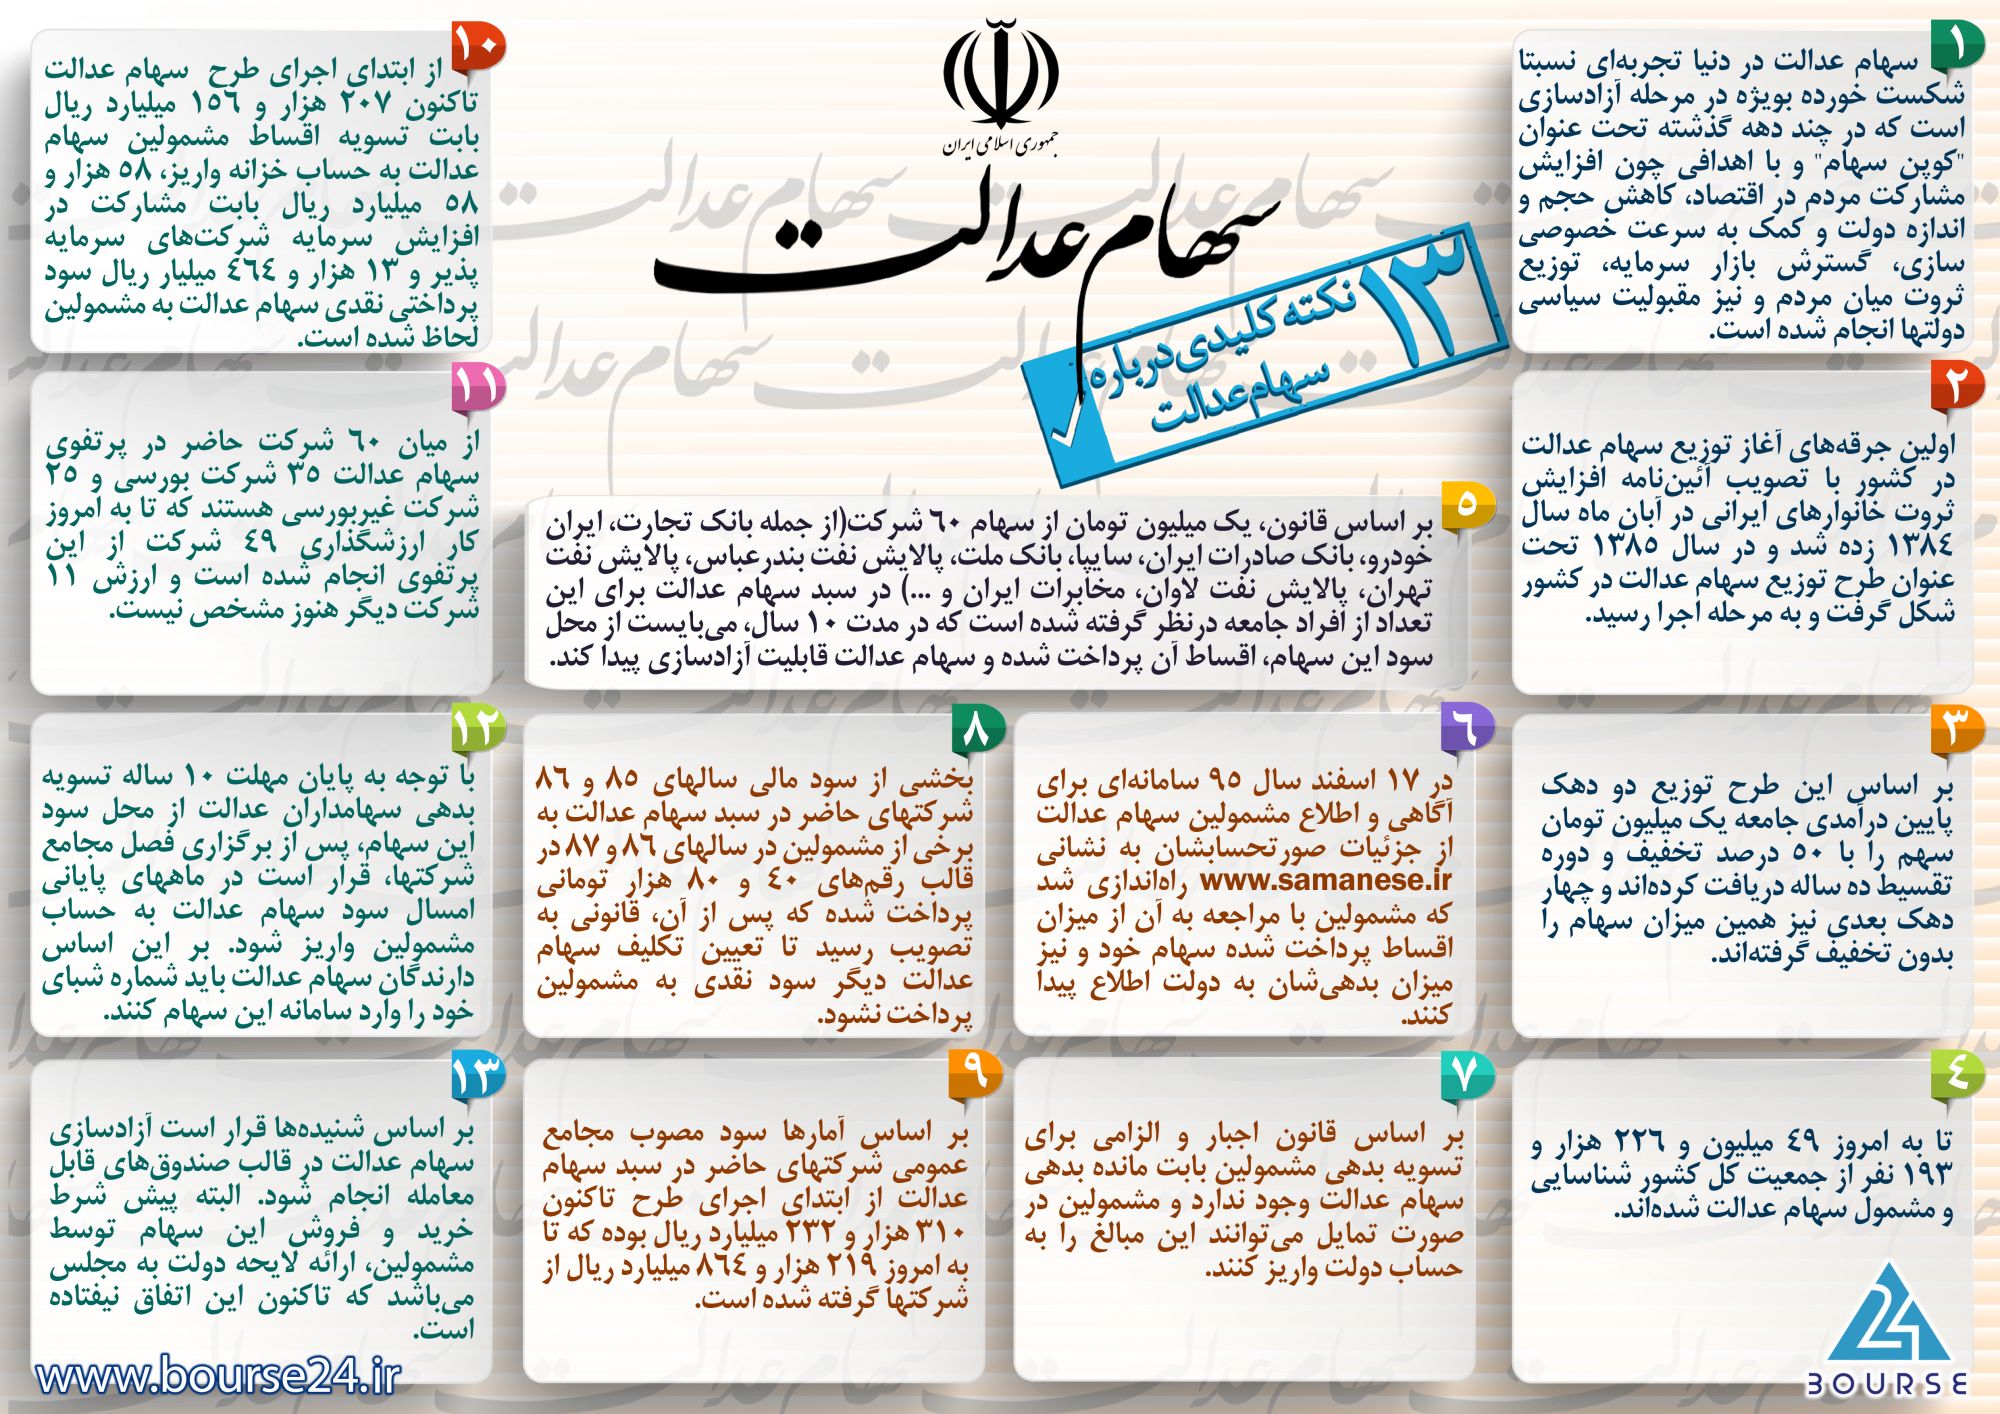 جمهوری اسلامی ایران
سهام عدالت
۱۳ نکته کلیدی درباره
سهام عدالت
۱
سهام عدالت در دنیا تجربه‌ای نسبتا
شکست خورده بویژه در مرحله آزادسازی
است که در چند دهه گذشته تحت عنوان
"کوپن سهام" و با اهدافی چون افزایش
مشارکت مردم در اقتصاد، کاهش حجم و
اندازه دولت و کمک به سرعت خصوصی
سازی، گسترش بازار سرمایه، توزیع
ثروت میان مردم و نیز مقبولیت سیاسی
دولتها انجام شده است.
۲
اولین جرقه‌های آغاز توزیع سهام عدالت
در کشور با تصویب آئین‌نامه افزایش
ثروت خانوارهای ایرانی در آبان ماه سال
۱۳۸٤ زده شد و در سال ۱۳۸۵ تحت
عنوان طرح توزیع سهام عدالت در کشور
شکل گرفت و به مرحله اجرا رسید.
۳
بر اساس این طرح توزیع دو دهک
پایین درآمدی جامعه یک میلیون تومان
سهم را با ۵۰ درصد تخفیف و دوره
تقسیط ده ساله دریافت کرده‌اند و چهار
دهک بعدی نیز همین میزان سهام را
بدون تخفیف گرفته‌اند.
٤
تا به امروز ٤۹ میلیون و ۲۲٦ هزار و
۱۹۳ نفر از جمعیت کل کشور شناسایی
و مشمول سهام عدالت شده‌اند.
۵
بر اساس قانون، یک میلیون تومان از سهام ٦۰ شرکت(از جمله بانک تجارت، ایران
خودرو، بانک صادرات ایران، سایپا، بانک ملت، پالایش نفت بندرعباس، پالایش نفت
تهران، پالایش نفت لاوان، مخابرات ایران و ...) در سبد سهام عدالت برای این
تعداد از افراد جامعه درنظر گرفته شده است که در مدت ۱۰ سال، می‌بایست از محل
سود این سهام، اقساط آن پرداخت شده و سهام عدالت قابلیت آزادسازی پیدا کند.
٦
در ۱۷ اسفند سال ۹۵ سامانه‌ای برای
آگاهی و اطلاع مشمولین سهام عدالت
از جزئیات صورتحسابشان به نشانی
www.samanese.ir راه‌اندازی شد
که مشمولین با مراجعه به آن از میزان
اقساط پرداخت شده سهام خود و نیز
میزان بدهی‌شان به دولت اطلاع پیدا
کنند.
۷
بر اساس قانون اجبار و الزامی برای
تسویه بدهی مشمولین بابت مانده بدهی
سهام عدالت وجود ندارد و مشمولین در
صورت تمایل می‌توانند این مبالغ را به
حساب دولت واریز کنند.
۸
بخشی از سود مالی سالهای ۸۵ و ۸٦
شرکتهای حاضر در سبد سهام عدالت به
برخی از مشمولین در سالهای ۸٦ و ۸۷ در
قالب رقم‌های ٤۰ و ۸۰ هزار تومانی
پرداخت شده که پس از آن، قانونی به
تصویب رسید تا تعیین تکلیف سهام
عدالت دیگر سود نقدی به مشمولین
پرداخت نشود.
۹
بر اساس آمارها سود مصوب مجامع
عمومی شرکتهای حاضر در سبد سهام
عدالت از ابتدای اجرای طرح تاکنون
۳۱۰ هزار و ۲۳۲ میلیارد ریال بوده که تا
به امروز ۲۱۹ هزار و ۸٦٤ میلیارد ریال از
شرکتها گرفته شده است.
۱۰
از ابتدای اجرای طرح سهام عدالت
تاکنون ۲۰۷ هزار و ۱۵٦ میلیارد ریال
بابت تسویه اقساط مشمولین سهام
عدالت به حساب خزانه واریز، ۵۸ هزار و
۵۸ میلیارد ریال بابت مشارکت در
افزایش سرمایه شرکت‌های سرمایه
پذیر و ۱۳ هزار و ٤٦٤ میلیار ریال سود
پرداختی نقدی سهام عدالت به مشمولین
لحاظ شده است.
۱۱
از میان ٦۰ شرکت حاضر در پرتفوی
سهام عدالت ۳۵ شرکت بورسی و ۲۵
شرکت غیربورسی هستند که تا به امروز
کار ارزشگذاری ٤۹ شرکت از این
پرتفوی انجام شده است و ارزش ۱۱
شرکت دیگر هنوز مشخص نیست.
۱۲
با توجه به پایان مهلت ۱۰ ساله تسویه
بدهی سهامداران عدالت از محل سود
این سهام، پس از برگزاری فصل مجامع
شرکتها، قرار است در ماههای پایانی
امسال سود سهام عدالت به حساب
مشمولین واریز شود. بر این اساس
دارندگان سهام عدالت باید شماره شبای
خود را وارد سامانه این سهام کنند.
۱۳
بر اساس شنیده‌ها قرار است آزادسازی
سهام عدالت در قالب صندوق‌های قابل
معامله انجام شود. البته پیش شرط
خرید و فروش این سهام توسط
مشمولین، ارائه لایحه دولت به مجلس
می‌باشد که تاکنون این اتفاق نیفتاده
است.
www.bourse24.ir
24
BOURSE